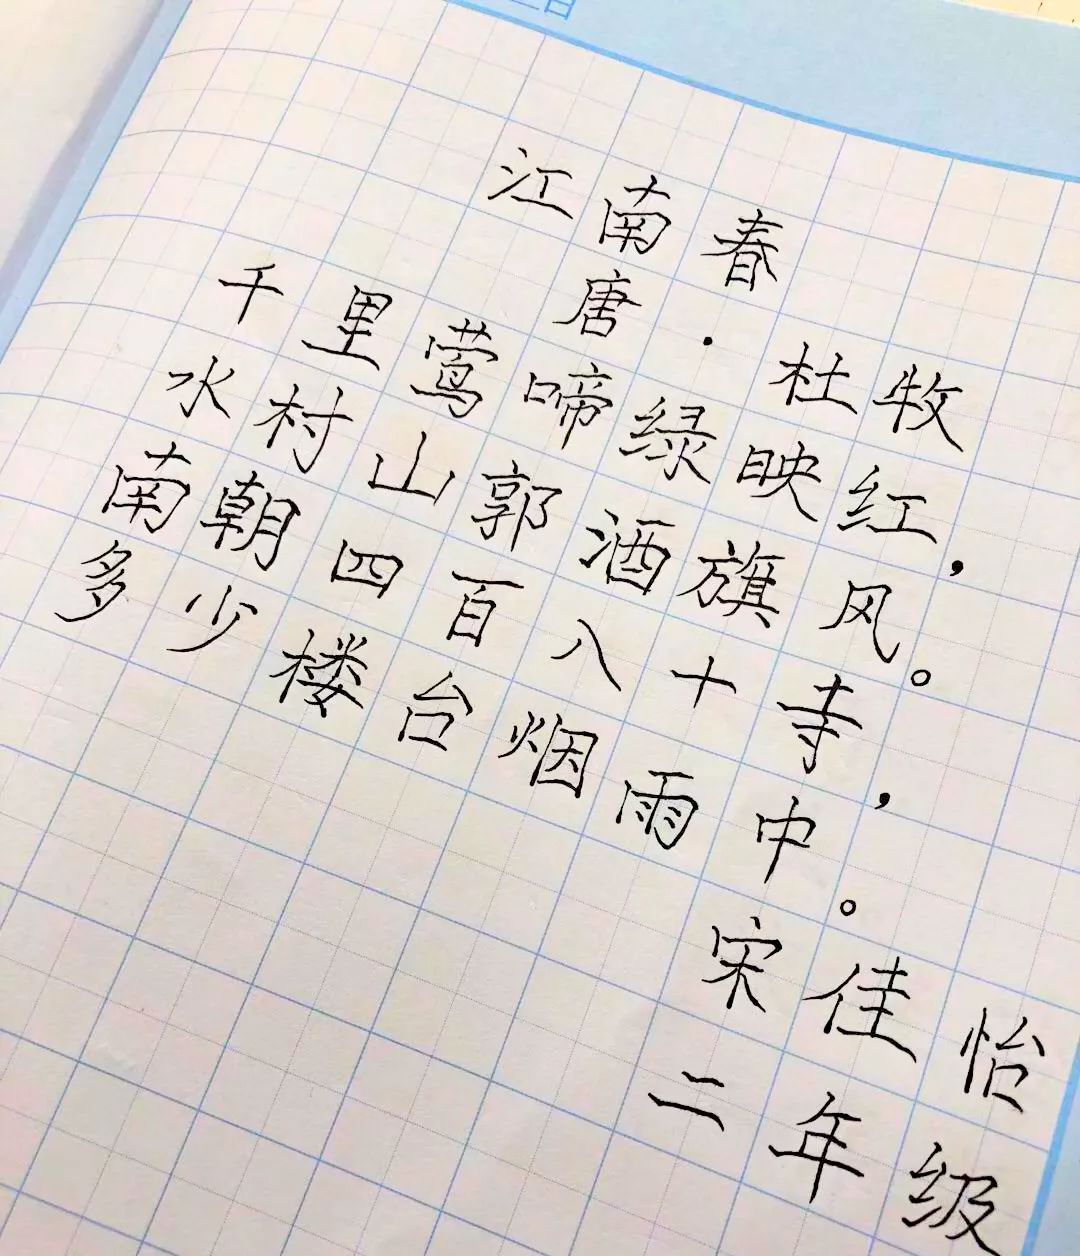 江南春
唐·杜牧
千里莺啼绿映红，
水村山郭酒旗风。
南朝四百八十寺，
多少楼台烟雨中。
宋佳怡
二年级